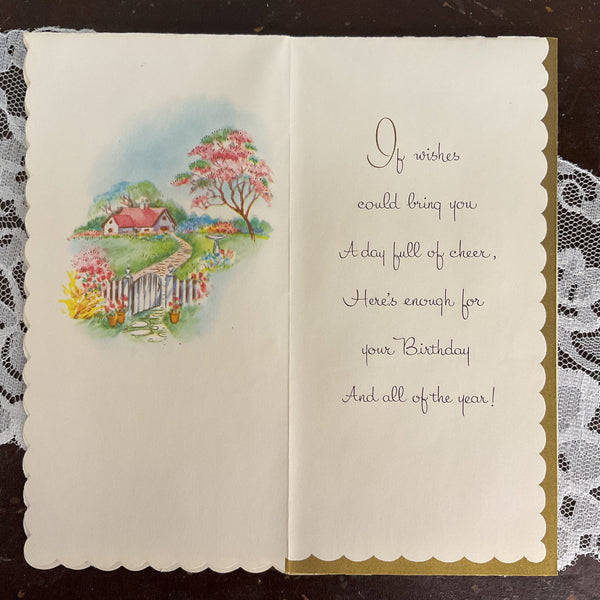 If wishes
could bring you
A day full of cheer,
Here's enough for
your Birthday
And all of the year!